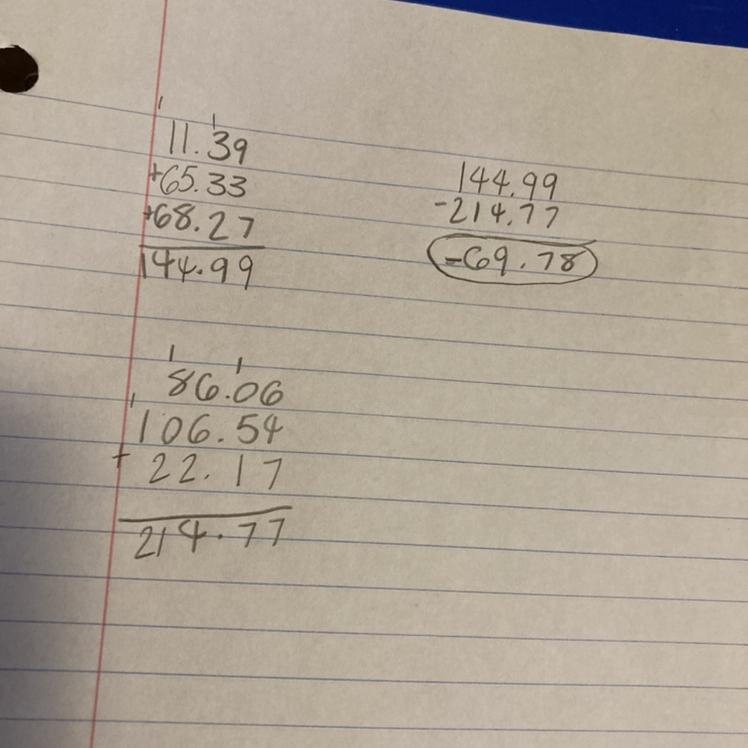 1 1
11.39
+65.33
+68.27
144.99
144.99
-214.77
-69.78
1 1
86.06
1
106.54
+ 22.17
214.77